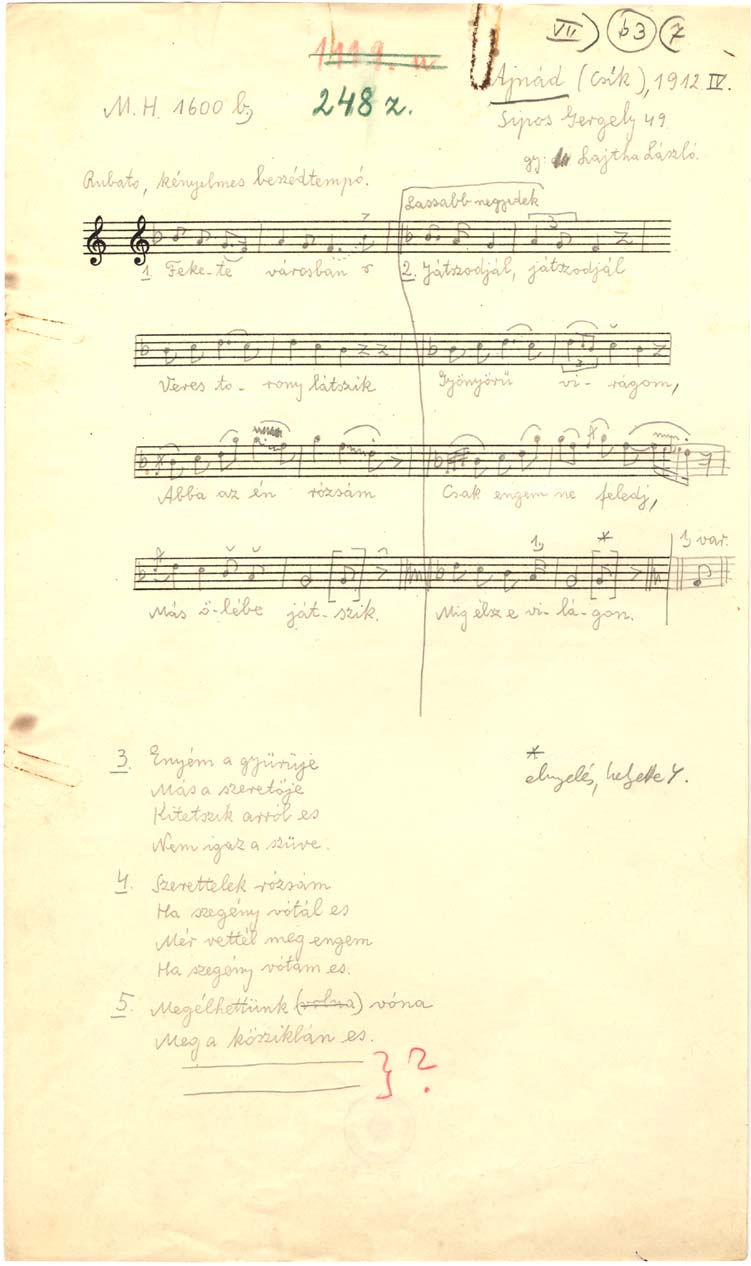 VII) b3 7
1419. u
248 z.
M. H. 1600 b)
Ajnád (Csík), 1912 IV.
Sipos Gergely 49
gy: Lajtha László.
Rubato, kényelmes beszédtempó.
Lassabb negyedek
3
1. Feke-te városban 2. Játszodjál, játszodjál
3
Veres to- rony látszik Gyönyörű vi- rágom,
Abba az én rózsám Csak engem ne feledj,
1) * 1) var.
Más ö-lébe ját-szik. Míg élsz e vi-lá-gon.
3. Enyém a gyürüje
Más a szeretője
Kitetszik arról es
Nem igaz a szüve.
* elnyelés, helyette
4. Szerettelek rózsám
Ha szegény vótál es
Mér vettél meg engem
Ha szegény vótam es.
5. Megélhettünk (volna) vóna
Meg a kősziklán es.
} ?